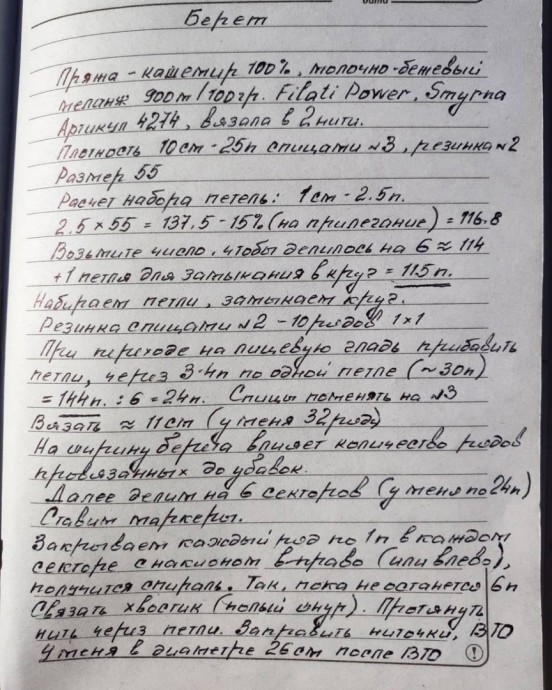 Берет
Пряжа - кашемир 100%, молочно-бежевый
меланж 900м/100гр. Filati Power, Smyrna
Артикул 4274, вязала в 2 нити.
Плотность 10см - 25п спицами №3, резинка №2
Размер 55
Расчет набора петель: 1см - 2.5п.
2.5 × 55 = 137.5 - 15% (на прилегание) = 116.8
Возьмите число, чтобы делилось на 6 ≈ 114
+ 1 петля для замыкания в круг = 115п.
Набираем петли, замыкаем круг.
Резинка спицами №2 - 10 рядов 1×1
При переходе на лицевую гладь прибавить
петли, через 3-4п по одной петле (~30п)
= 144п. : 6 = 24п. Спицы поменять на №3
Вязать ≈ 11см (у меня 32 ряда)
На ширину берета влияет количество рядов
провязанных до убавок.
Далее делим на 6 секторов (у меня по 24п)
Ставим маркеры.
Закрываем каждый ряд по 1п в каждом
секторе с наклоном вправо (или влево),
получится спираль. Так, пока не останется 6п
Связать хвостик (полый шнур). Протянуть
нить через петли. Заправить ниточки, ВТО
У меня в диаметре 26см после ВТО !